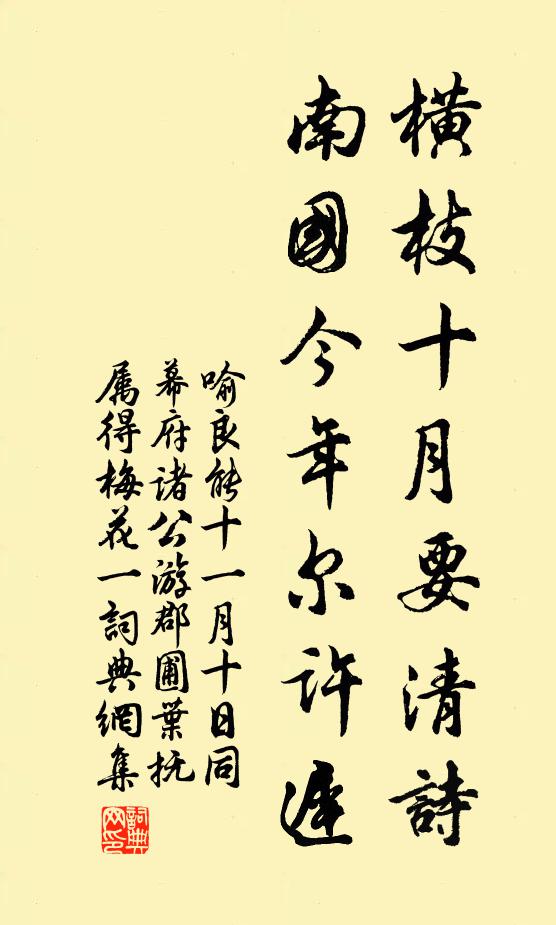 橫枝十月要清詩
南國今年尔許遲
喻良能十一月十日同
幕府諸公游郡圃葉抚
属得梅花一詞典網集
詞典网印